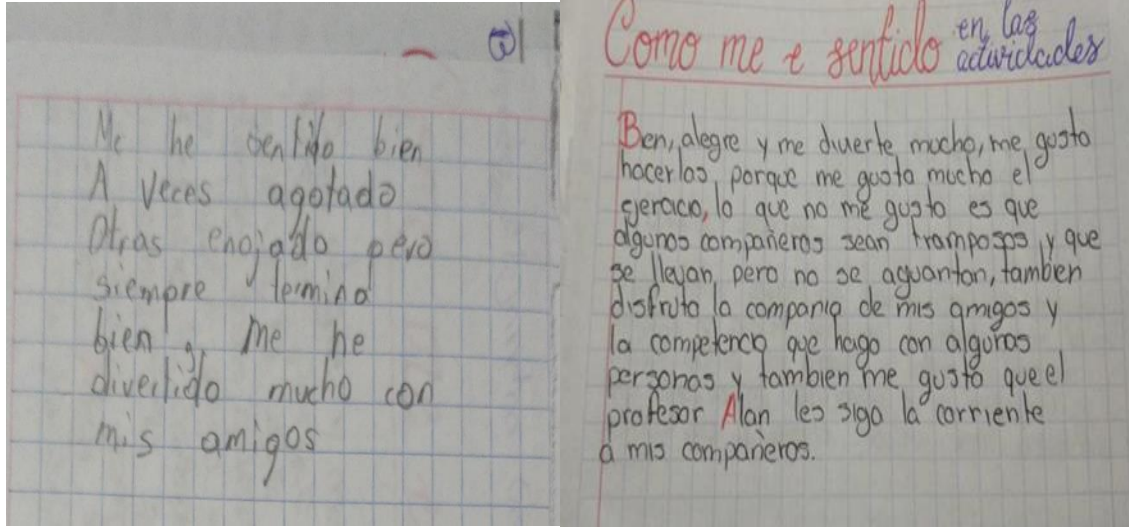 Me he sentido bien
A veces agotado
Otras enojado pero
siempre termina
bien y me he
divertido mucho con
mis amigos
Como me e sentido en las actividades
Ben, alegre y me duerte mucho, me gusto
hacerlos, porque me gusta mucho el
ejeracio, lo que no me gusto es que
algunos compañeros sean tramposos, y que
se llevan, pero no se aguantan, tambien
disfruto la compania de mis amigos y
la competencia que hago con algunas
personas y tambien me gusto que el
profesor Alan les siga la corriente
a mis compañeros.